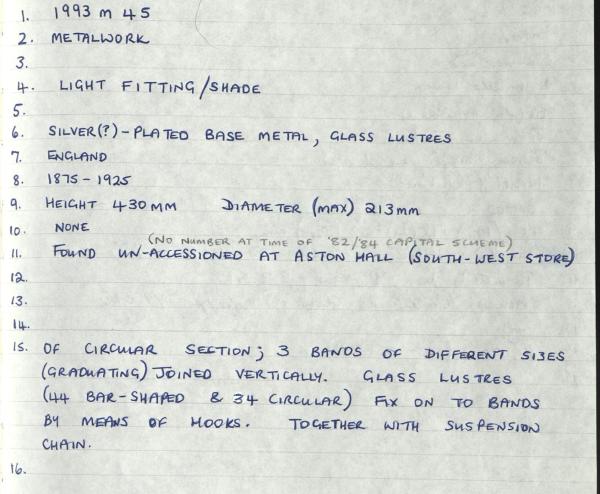 1. 1993 M 45
2. METALWORK
3.
4. LIGHT FITTING/SHADE
5.
6. SILVER(?)-PLATED BASE METAL, GLASS LUSTRES
7. ENGLAND
8. 1875-1925
9. HEIGHT 430MM DIAMETER (MAX) 213mm
10. NONE
(NO NUMBER AT TIME OF '82/'84 CAPITAL SCHEME)
11. FOUND UN-ACCESSIONED AT ASTON HALL (SOUTH-WEST STORE)
12.
13.
14.
15. OF CIRCULAR SECTION; 3 BANDS OF DIFFERENT SIZES
(GRADUATING) JOINED VERTICALLY. GLASS LUSTRES
(44 BAR-SHAPED & 34 CIRCULAR) FIX ON TO BANDS
BY MEANS OF HOOKS. TOGETHER WITH SUSPENSION
CHAIN.
16.